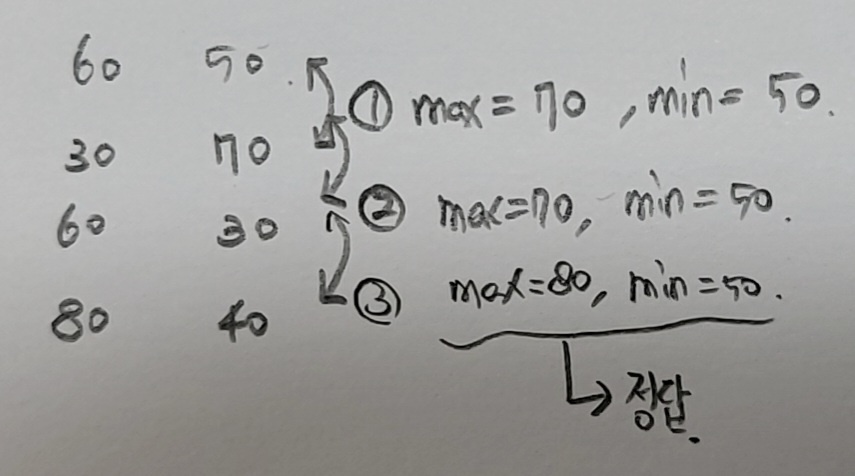 60 50 ① max = 70, min = 50.
30 70
60 30 ② max=70, min = 50.
80 40 ③ max=80, min =50.
정답.